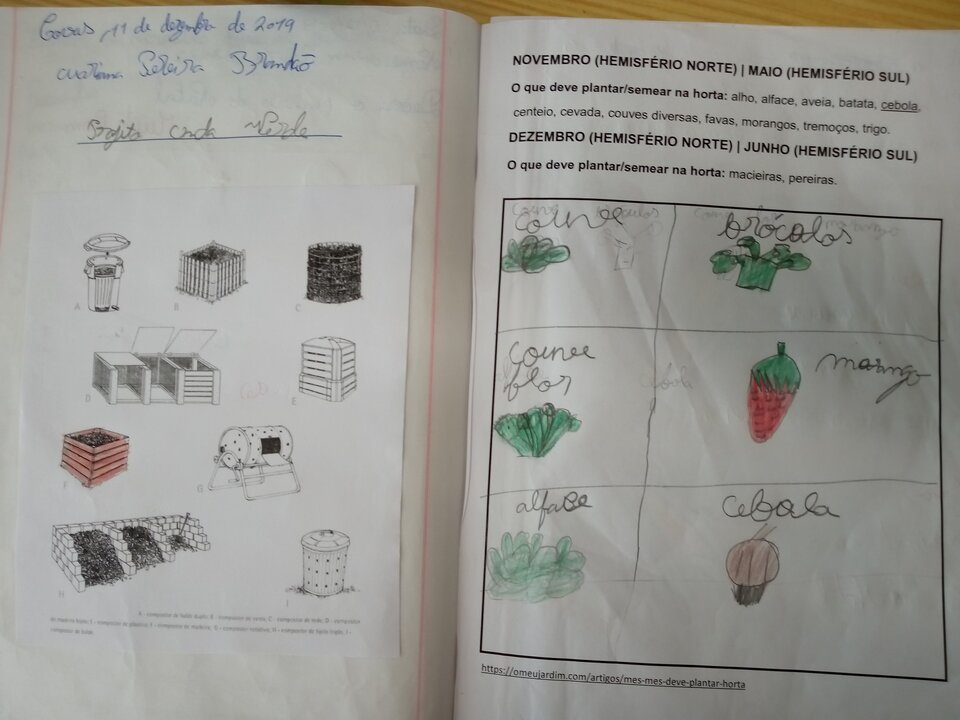 Covas, 11 de dezembro de 2019
Pereira Brandão
A
B
C
D
E
F
G
H
I
A - compostor de balde duplo; B - compostor de canas; C - compostor de rede; D - compostor
de madeira triplo; E - compostor de plástico; F - compostor de madeira; G - compostor rotativo; H - compostor de tijolo triplo; I -
compostor de balde.
NOVEMBRO (HEMISFÉRIO NORTE) | MAIO (HEMISFÉRIO SUL)
O que deve plantar/semear na horta: alho, alface, aveia, batata, cebola,
centeio, cevada, couves diversas, favas, morangos, tremoços, trigo.
DEZEMBRO (HEMISFÉRIO NORTE) | JUNHO (HEMISFÉRIO SUL)
O que deve plantar/semear na horta: macieiras, pereiras.
couve
brócolos
couve
flor
alface
cebola
https://omeujardim.com/artigos/mes-mes-deve-plantar-horta